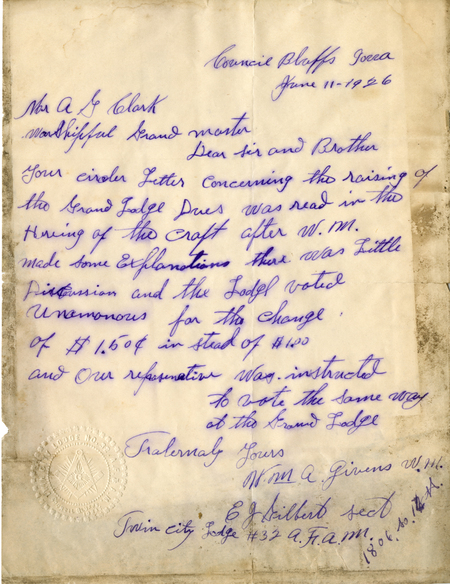 Council Bluffs Iowa
June 11-1926
Mr A G Clark
Worshipful Grand master
Dear Sir and Brother
Your circler Letter Concerning the raising of
the Grand Lodge Dues was read in the
Hereing of the Craft after W.M.
made some Explanations there was Little
Discussion and the Lodge voted
Unamonous for the Change
of $1.50¢ in stead of $1.00
and Our represenative was instructed
to vote the same way
at the Grand Lodge
Fraternaly Yours
W.M. A. Givens W.M.
E J Gilbert sect
Twin City Lodge #32 A.F.A.M.
1806